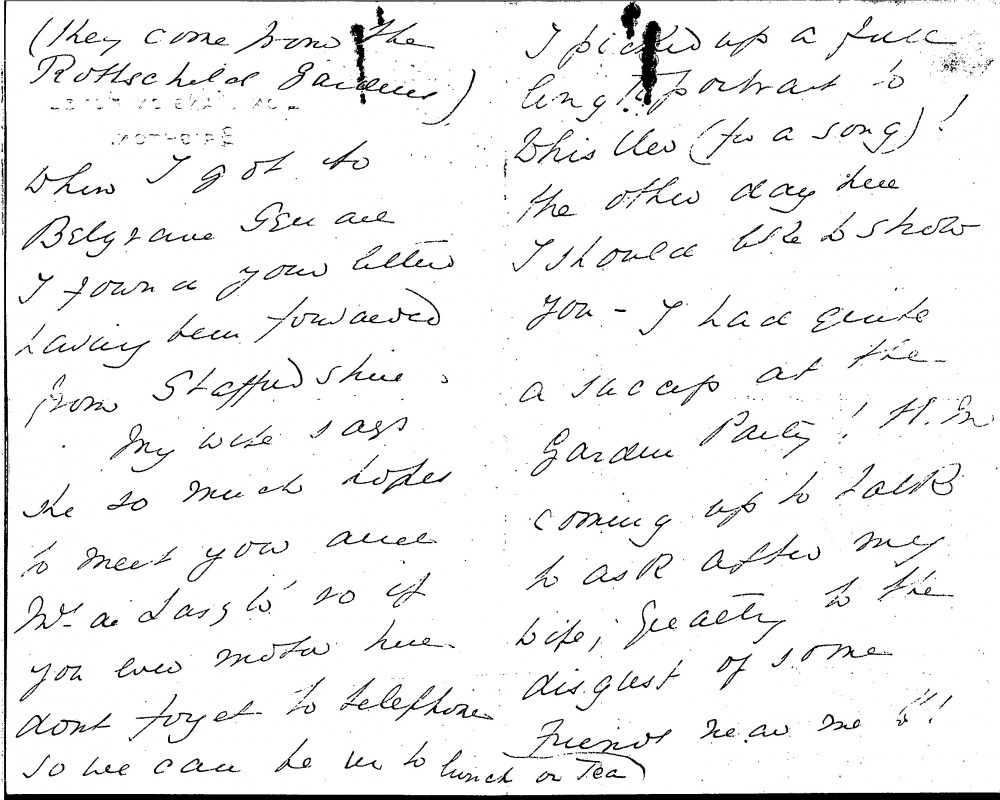 (they come from the
Rothschild Gardens)
When I got to
Belgrave Square
I found your letter
having been forwarded
from Staffordshire.
My wife says
she so much hopes
to meet you and
Mrs. de Laszlo so if
you ever motor here
dont forget to telephone
so we can be in to lunch or Tea)
I picked up a full
length portrait to
Whistler (for a song)!
the other day here
I should like to show
you - I had quite
a success at the
Garden Party! H.M
coming up to talk
to ask after my
wife; greatly to the
disgust of some
Friends near me!!